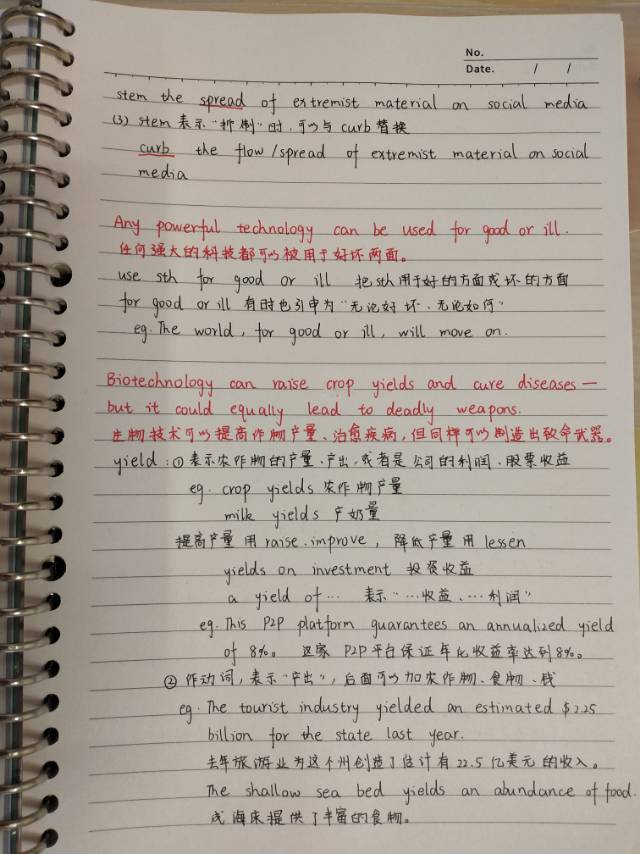 No.
Date. / /
stem the spread of extremist material on social media
(3) stem 表示"抑制"时,可以与curb替换
curb the flow/spread of extremist material on social
media
Any powerful technology can be used for good or ill.
任何强大的科技都可以被用于好坏两面。
use sth for good or ill 把sth用于好的方面或坏的方面
for good or ill 有时也引申为"无论好坏、无论如何"
eg. The world, for good or ill, will move on.
Biotechnology can raise crop yields and cure diseases —
but it could equally lead to deadly weapons.
生物技术可以提高作物产量、治愈疾病,但同样可以制造出致命武器。
yield: ① 表示农作物的产量、产出,或者是公司的利润、股票收益
eg. crop yields 农作物产量
milk yields 产奶量
提高产量用raise、improve, 降低产量用lessen
yields on investment 投资收益
a yield of … 表示"…收益、…利润"
eg. This P2P platform guarantees an annualized yield
of 8%。 这家P2P平台保证年化收益率达到8%。
② 作动词,表示"产出",后面可以加农作物、食物、钱
eg. The tourist industry yielded an estimated $2.25
billion for the state last year.
去年旅游业为这个州创造了估计有22.5亿美元的收入。
The shallow sea bed yields an abundance of food.
浅海床提供了丰富的食物。